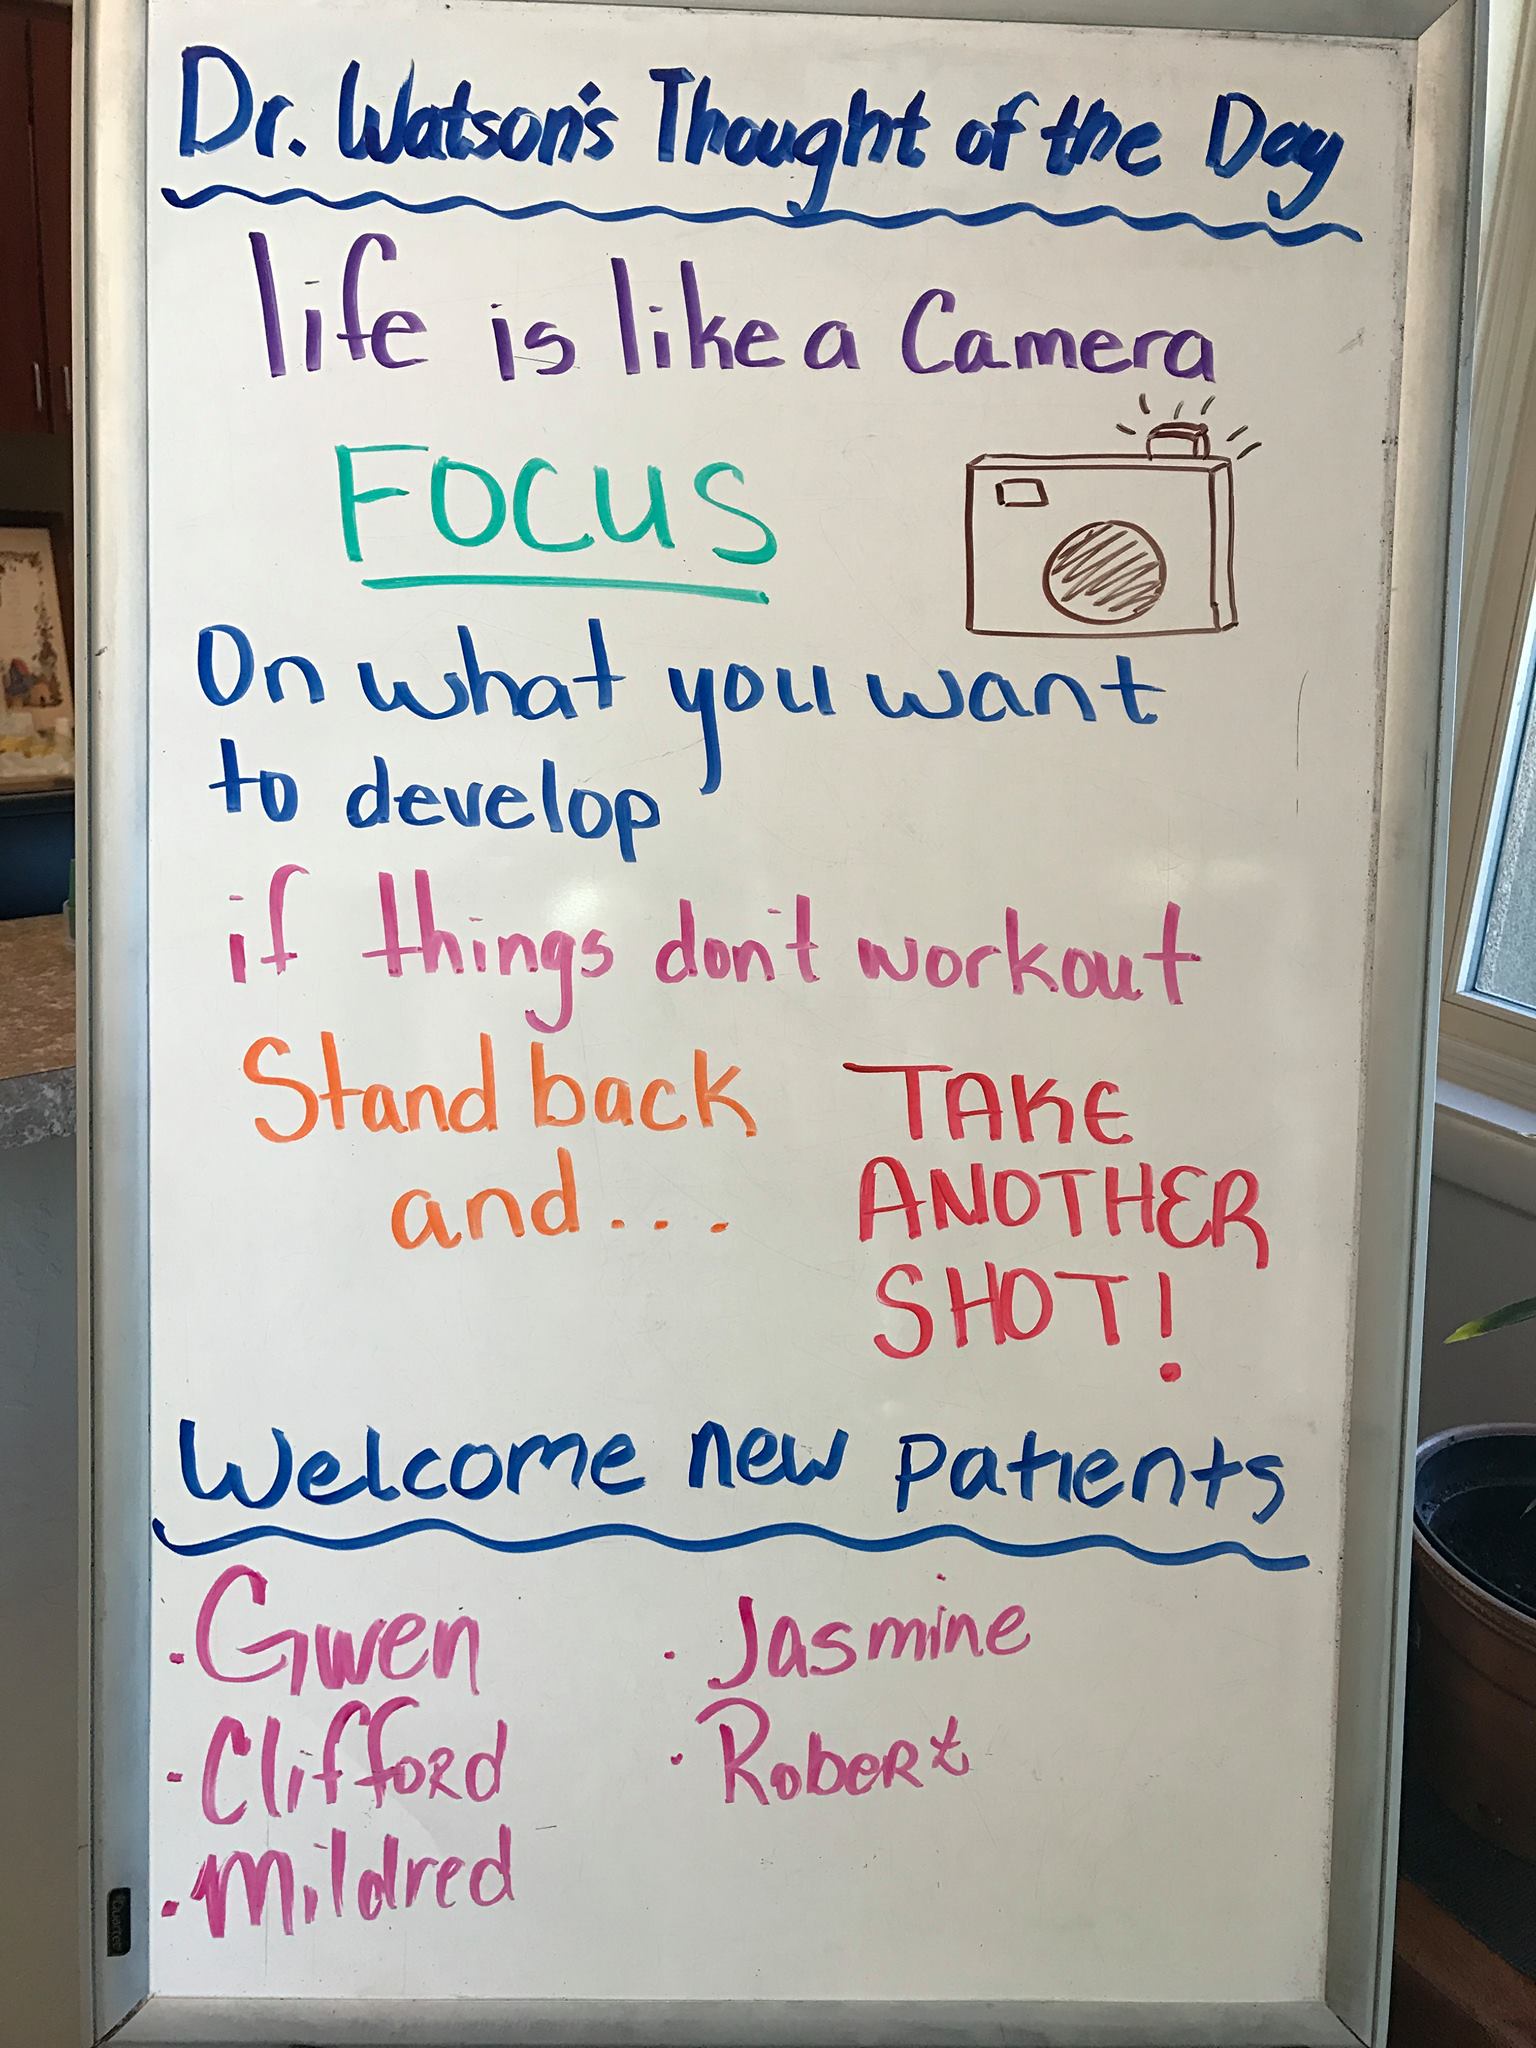 Dr. Watson's Thought of the Day
life is like a Camera
FOCUS
On what you want
to develop
if things don't workout
Stand back
and...
TAKE
ANOTHER
SHOT!
Welcome new patients
· Gwen
· Clifford
· Mildred
· Jasmine
· Robert
Quartet